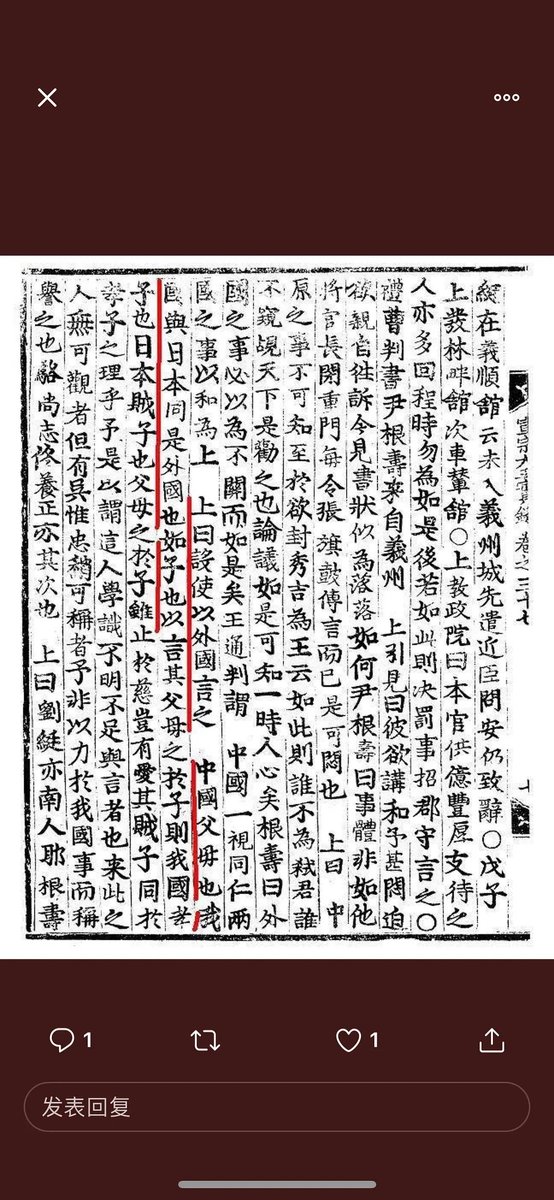 宣宗大王實錄 卷之三十七
綱在義順館云未入義州城先遣近臣問安仍致辭○戊子
上發林畔館次車輦館○上敎政院曰本官供億豐厚支待之
人亦多回程時勿為如是後若如此則决罰事招郡守言之○
禮曹判書尹根壽來自義州 上引見曰彼欲講和予甚悶迫
欲親自往訴今見書狀似為落落如何尹根壽曰事體非如他
將官長閉重門每令張旗鼓傳言而已是可悶也 上曰 中
原之事不可知至於欲封秀吉為王云如此則誰不為弑君誰
不窺覘天下是勸之也論議如是可知一時人心矣根壽曰外
國之事必以為不關而如是矣王通判謂 中國一視同仁兩
國之事以和為上 上曰設使以外國言之 中國父母也我
國與日本同是外國也如子也以言其父母之於子則我國孝
子也日本賊子也父母之於子雖止於慈豈有愛其賊子同於
孝子之理乎予是以謂這人學識不明不足與言者也来此之
人無可觀者但有吳惟忠稍可稱者予非以力於我國事而稱
譽之也駱尚志修養正亦其次也 上曰劉綎亦南人耶根壽
1
1
发表回复